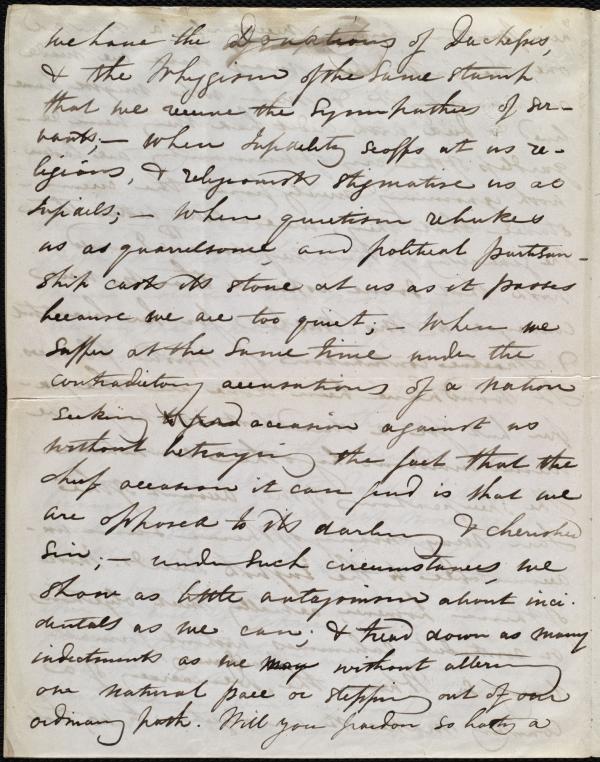 we have the Donations of Duchess,
& the Whyggism of the same stamp
that we receive the sympathies of ser-
vants; – when Infidelity scoffs at us re-
ligions, & religionists stigmatise us as
Infidels; – when quietism rebukes
us as quarrelsome and political partisan-
ship casts its stone at us as it passes
because we are too quiet; – when we
suffer at the same time under the
contradictory accusations of a nation
seeking occasion against us
without betraying the fact that the
chief occasion it can find is that we
are opposed to its darling & cherished
sin; – under such circumstances, we
show as little antagonism about inci-
dentals as we can; & tread down as many
indictments as we may without altering
our natural pace or stepping out of our
ordinary path. Will you pardon so hasty a